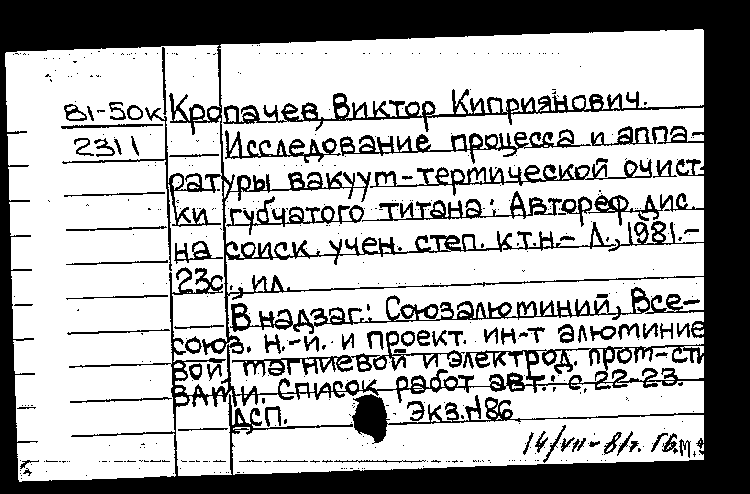 81-50к Кропачев, Виктор Киприянович.
2311 Исследование процесса и аппа-
ратуры вакуум-термической очист-
ки губчатого титана: Автореф. дис.
на соиск. учен. степ. к.т.н.- Л., 1981.-
23с., ил.
В надзаг.: Союзалюминий, Все-
союз. н.-и. и проект. ин-т алюминие
вой, магниевой и электрод. пром-сти
ВАМИ. Список работ авт.: с. 22-23.
ДСП. Экз. №86.
14/VII-81г.